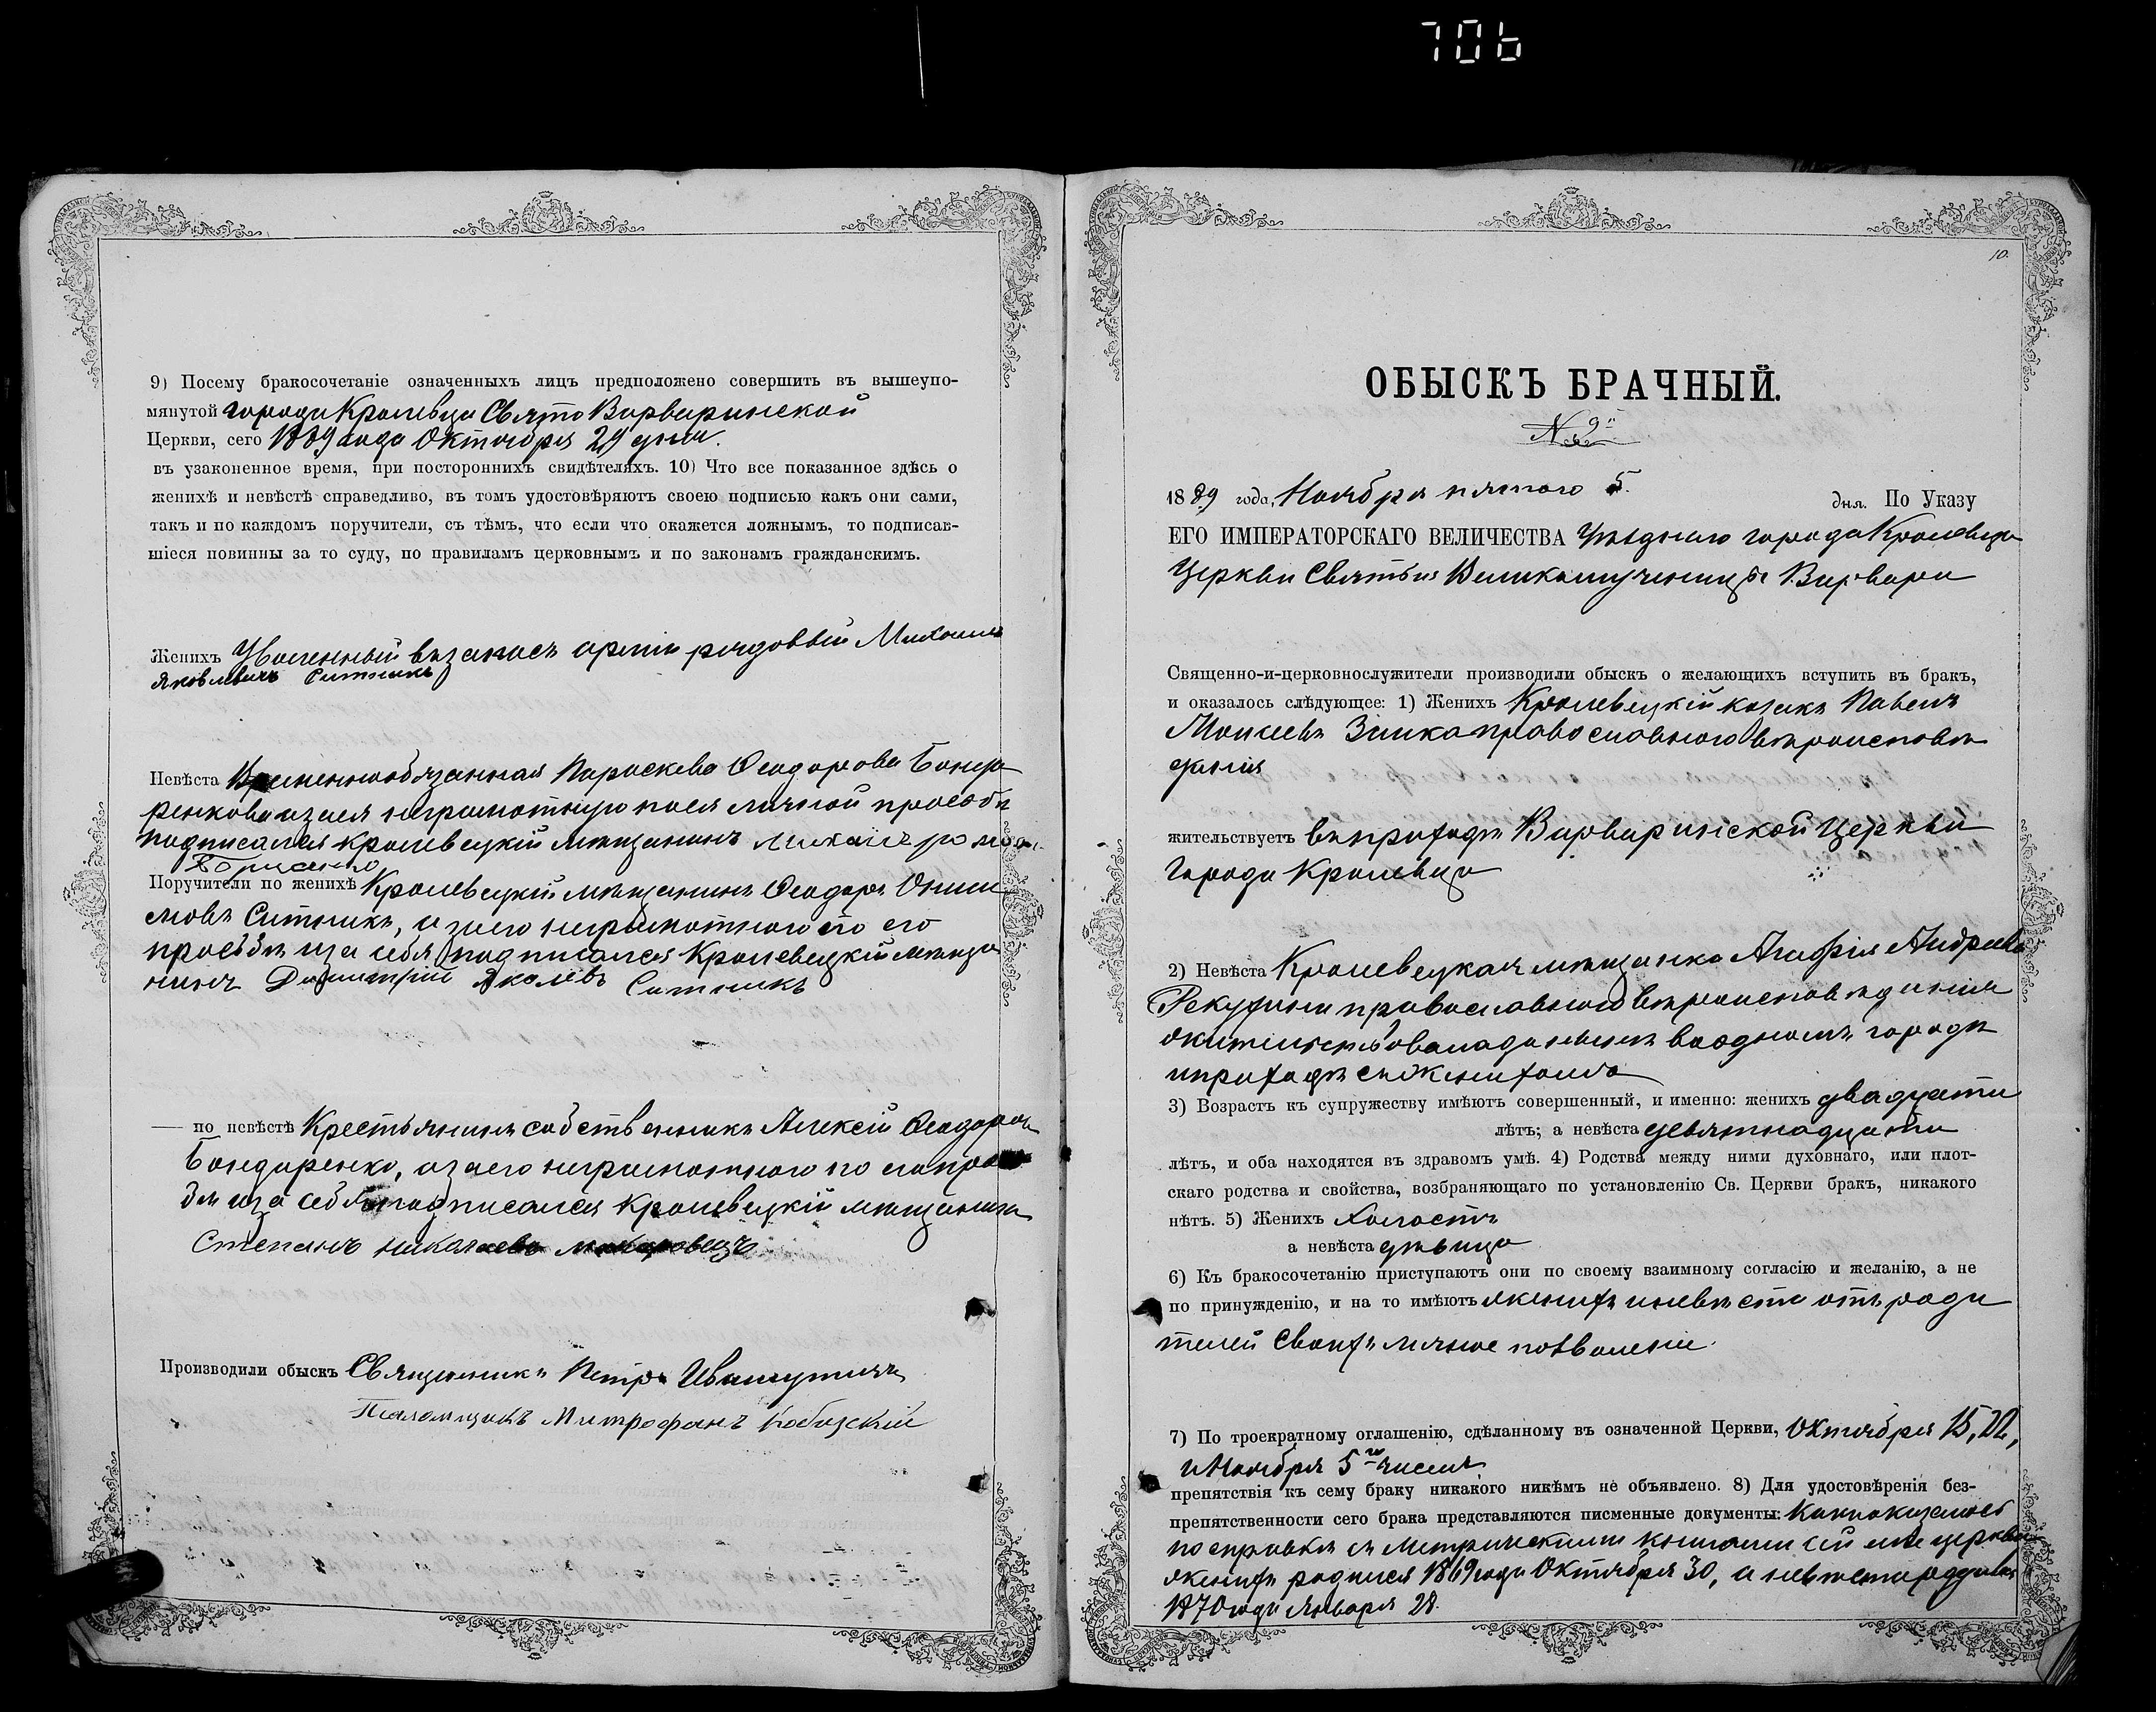 706
9) Посему бракосочетаніе означенныхъ лицъ предположено совершить въ вышеупо-
мянутой города Кролевца Свято Варваринской
Церкви, сего 1889 года Октября 29 дня.
въ узаконенное время, при постороннихъ свидѣтеляхъ. 10) Что все показанное здѣсь о
женихѣ и невѣстѣ справедливо, въ томъ удостовѣряютъ своею подписью какъ они сами,
такъ и по каждомъ поручители, съ тѣмъ, что если что окажется ложнымъ, то подписав-
шіеся повинны за то суду, по правиламъ церковнымъ и по законамъ гражданскимъ.
Женихъ Уволенный въ запасъ арміи рядовый Михаилъ
Яковлевичъ Ситникъ
Невѣста Временнообязанная Параскева Феодорова Бонда
ренкова а за нея неграмотную по ея личной просьбѣ
подписался Кролевецкій мѣщанинъ Михаилъ
Борисенко
Поручители по женихѣ Кролевецкій мѣщанинъ Феодоръ Ониси
мовъ Ситникъ, а за его неграмотного по его
просьбѣ и за себя подписался Кролевецкій мѣща
нинъ Димитрій Яколевъ Ситникъ
— по невѣстѣ Крестьянинъ собственникъ Алексій Феодоров
Бондаренко, а за его неграмотного по его прось
бѣ и за себя подписался Кролевецкій мѣщанинъ
Степанъ Николаевъ Макаровецъ
Производили обыскъ Священникъ Петръ Ивашутичъ
Псаломщикъ Митрофанъ
10.
ОБЫСКЪ БРАЧНЫЙ.
№ 9й
1889 года, Ноября пятого 5. дня. По Указу
ЕГО ИМПЕРАТОРСКАГО ВЕЛИЧЕСТВА Уѣздного города Кролевца
Церкви Святыя Великомученицы Варвары
Священно-и-церковнослужители производили обыскъ о желающихъ вступить въ бракъ,
и оказалось слѣдующее: 1) Женихъ Кролевецкій козакъ Павелъ
Моисеевъ Заика православного вѣроисповѣ
данія
жительствуетъ въ приходѣ Варваринской Церкви
города Кролевца
2) Невѣста Кролевецкая мѣщанка Агафія Андреева
православного вѣроисповѣданія
жительствовала до нынѣ въ одномъ городѣ
и приходѣ съ женихомъ
3) Возрастъ къ супружеству имѣютъ совершенный, и именно: женихъ двадцати
лѣтъ; а невѣста девятнадцати
лѣтъ, и оба находятся въ здравомъ умѣ. 4) Родства между ними духовнаго, или плот-
скаго родства и свойства, возбраняющаго по установленію Св. Церкви бракъ, никакого
нѣтъ. 5) Женихъ холостъ
а невѣста дѣвица
6) Къ бракосочетанію приступаютъ они по своему взаимному согласію и желанію, а не
по принужденію, и на то имѣютъ женихъ и невѣста отъ роди
телей своихъ личное позволеніе.
7) По троекратному оглашенію, сдѣланному въ означенной Церкви, Октября 15, 22,
и Ноября 5го числъ
препятствія къ сему браку никакого никѣмъ не объявлено. 8) Для удостовѣренія без-
препятственности сего брака представляются писменные документы: Какъ оказалось
по справкѣ съ Метрическими книгами сей церкви
женихъ родился 1869 года Октября 30, а невѣста родилась
1870 года Января 28.